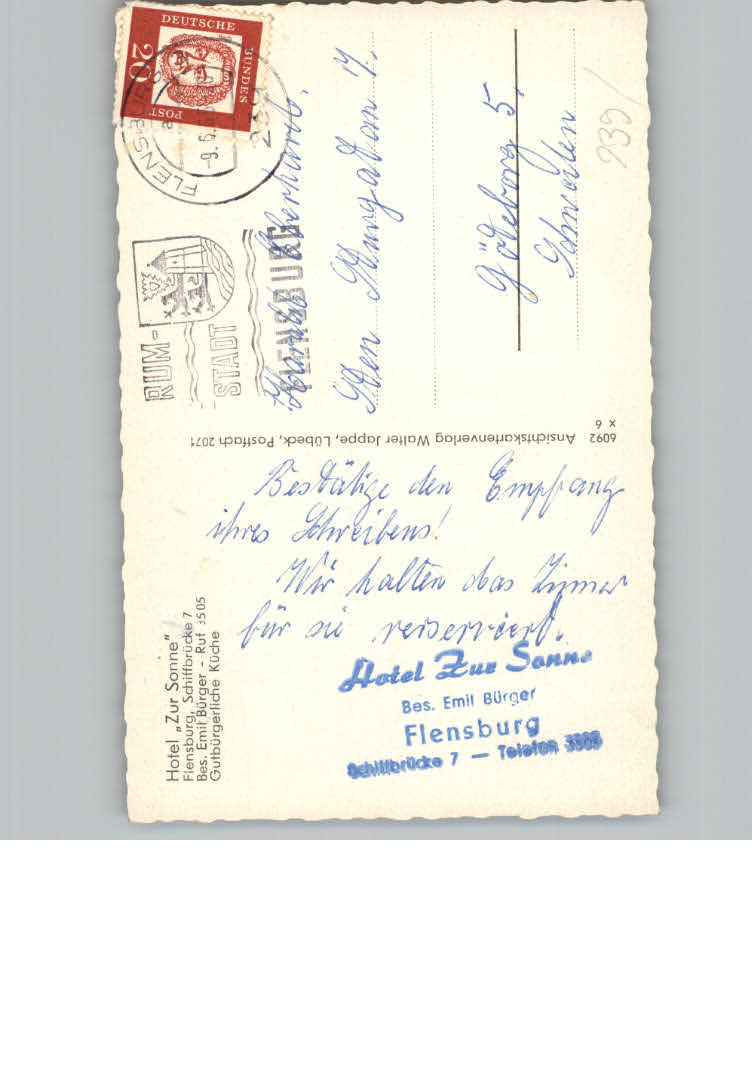 Hotel „Zur Sonne"
Flensburg, Schiffbrücke 7
Bes. Emil Bürger - Ruf 3505
Gutbürgerliche Küche
Bestätige den Empfang
ihres Schreibens!
Wir halten das Zimmer
für sie reserviert.
Hotel Zur Sonne
Bes. Emil Bürger
Flensburg
Schiffbrücke 7 — Telefon
6092 Ansichtskartenverlag Walter Jappe, Lübeck, Postfach 2071
x 6
DEUTSCHE BUNDES POST
20
FLENSBURG
-9. 6. 6
RUM-
STADT
FLENSBURG
Eberhardt,
7,
Göteborg 5,
Schweden
239/